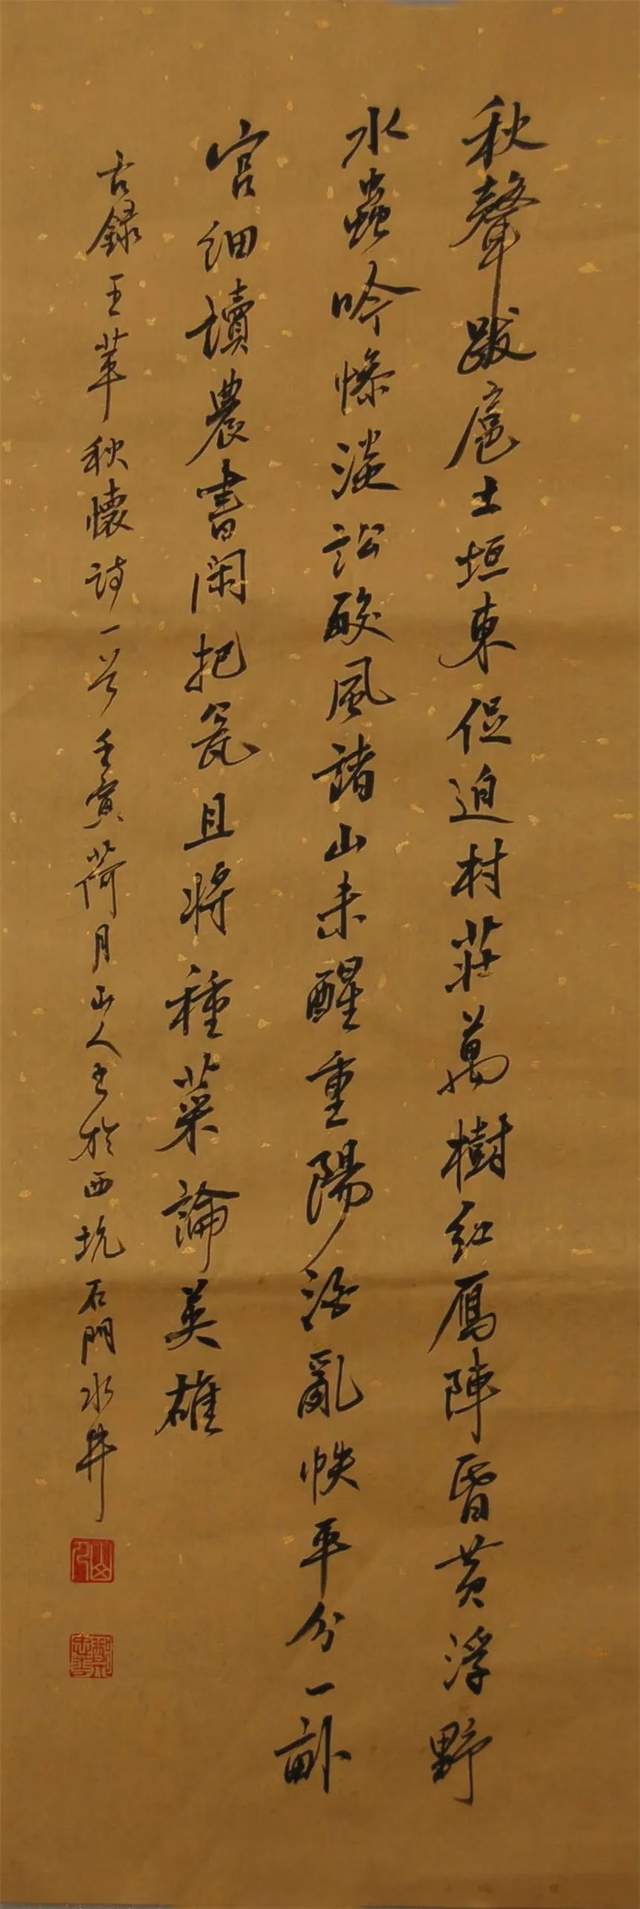 秋聲跋扈土垣東促迫村莊萬樹紅雁陣昏黄浮野
水蟲吟惨淡訟酸風諸山未醒重陽酒亂帙平分一畝
宫细讀農書闲把瓮且将種菜論英雄
古録王苹秋懷诗一首壬寅荷月山人書於西坑石門水井